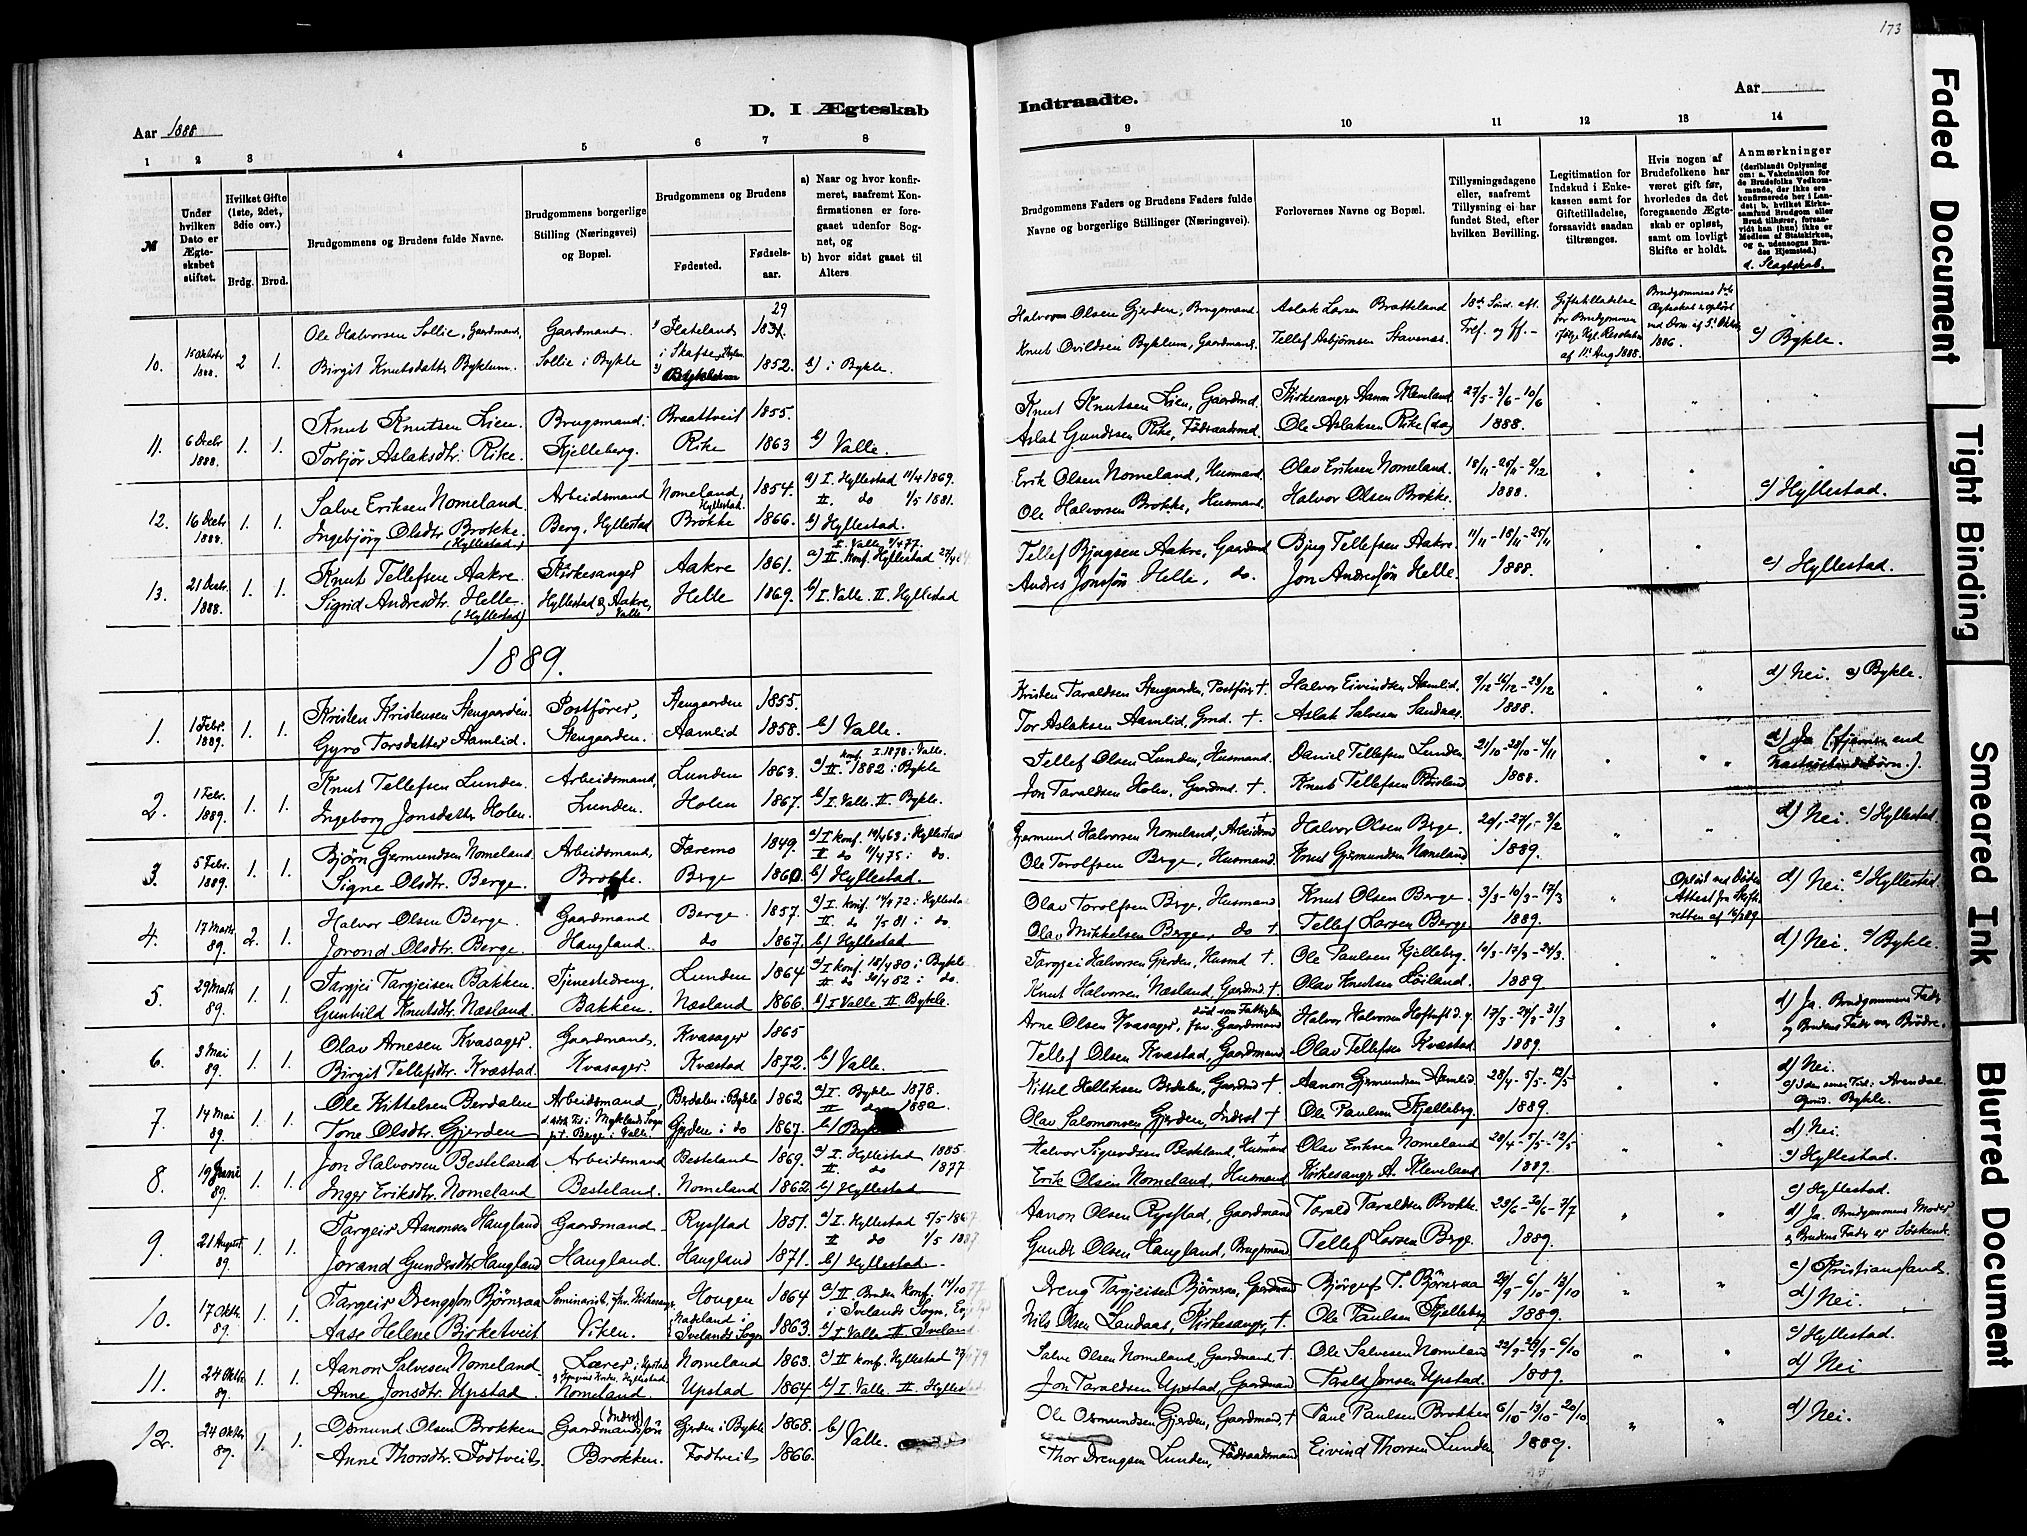 173
D. I Ægteskab
Indtraadte.
Aar 1888
Aar
1 2 3 4 5 6 7 8
9 10 11 12 13 14
№
Under hvilken Dato er Ægteskabet stiftet.
Hvilket Gifte (1ste, 2det, 3die osv.)
Brdg. Brud.
Brudgommens og Brudens fulde Navne.
Brudgommens borgerlige Stilling (Næringsvei) og Bopæl.
Brudgommens og Brudens
Fødested.
Fødselsaar.
a) Naar og hvor konfirmeret, saafremt Konfirmationen er foregaaet udenfor Sognet, og
b) hvor sidst gaaet til Alters
Brudgommens Faders og Brudens Faders fulde Navne og borgerlige Stillinger (Næringsvei).
Forlovernes Navne og Bopæl.
Tillysningsdagene eller, saafremt Tillysning ei har fundet Sted, efter hvilken Bevilling.
Legitimation for Indskud i Enkekassen samt for Giftetilladelse, forsaavidt saadan tiltrænges.
Hvis nogen af Brudefolkene har været gift før, hvorledes da det foregaaende Ægteskab er opløst, samt om lovligt Skifte er holdt.
Anmærkninger
(deriblandt Oplysning om: a. Vakcination for de Brudefolks Vedkommende, der ikke ere konfirmerede her i Landet; b. hvilket Kirkesamfund Brudgom eller Brud tilhører, forsaavidt han (hun) ikke er Medlem af Statskirken, og c. udensogns Brudes Hjemsted.)
d. Slægtskab.
10. 15 Oktober 1888. 2 1. Ole Halvorsen Sollie, Gaardmand, Gaardmand. Flateland 1831. 29
Birgit Knutsdatter Byklum. Sollie i Bykle i Skafse 1852. b) i Bykle.
Halvor Olsen Gjerden, Brugsmand. Aslak Larsen Bratteland 18de Sønd. eft. Tref. og ff. Giftetilladelse for Brudgommen ifølge Kgl. Resolution af 11 Aug 1888.
Knut Øvildsen Byklum, Gaardmand. Tellef Asbjørnsen Stavenæs. c) Bykle.
11. 6 Decbr 1888. 1. 1. Knut Knutsen Lien. Brugsmand. Braattveit 1855.
Torbjør Aslaksdtr. Rike. Kjelleberg. Rike 1863 b) Valle.
Knut Knutsen Lien, Gaardmd. Kirkesanger Aanon Kleveland. 27/5 - 3/6 - 10/6
Aslak Gundersen Rike, Føderaadsmd. Ole Aslaksen Rike 1888.
12. 16 Decbr 1888. 1. 1. Salve Eriksen Nomeland. Arbeidsmand Nomeland, Hyllestad. 1854. a) I. Hyllestad 11/4 1869.
Ingebjørg Olsdtr Brokke. (Hyllestad) Berg, Hyllestad Brokke 1866. II. do 1/5 1881. b) Hyllestad.
Erik Olsen Nomeland, Husmand. Olav Eriksen Nomeland. 18/11 - 25/11 - 2/12
Ole Halvorsen Brokke, Husmand. Halvor Olsen Brokke. 1888. c) Hyllestad.
13. 21 Decbr 1888. 1. 1. Knut Tellefsen Aakre. Kirkesanger Aakre 1861. a) II konf. Hyllestad
Sigrid Andresdtr. Helle. (Hyllestad) Hyllestad og Aakre, Valle Helle 1869. b) I. Valle. II. Hyllestad
Tellef Bjugsen Aakre, Gaardmd. Bjug Tellefsen Aakre. 11/11 - 18/11 - 25/11
Andres Jonssøn Helle, do. Jon Andressøn Helle. 1888. c) Hyllestad.
1889.
1. 1 Febr. 1889. 1. 1. Kristen Kristensen Stengaarden. Postfører, Stengaarden 1855.
Gyro Torsdatter Aamlid. Stengaarden. Aamlid 1858. b) Valle.
Kristen Taraldsen Stengaarden, Postfører †. Halvor Eivindsen Aamlid. 9/12 16/12 - 23/12
Tor Aslaksen Aamlid, Grmd. †. Aslak Salvesen Sandnæs. 1888. d) Nei. c) Bykle.
2. 1 Febr. 1889. 1. 1. Knut Tellefsen Lunden. Arbeidsmand, Lunden 1863. a) konf. I. 1878 i Valle II 1882 i Bykle
Ingeborg Jonsdatter Holen. Lunden. Holen 1867. b) I. Valle. II. Bykle.
Tellef Olsen Lunden, Husmand. Daniel Tellefsen Lunden. 21/10 - 28/10 - 4/11
Jon Taraldsen Holen, Gaardmd. †. Knut Tellefsen 1888. d) Ja
3. 5 Febr. 1889. 1. 1. Bjørn Gjermundsen Nomeland. Arbeidsmand, Færemo 1849. a) I konf. 14/4 63 i Hyllestad
Signe Olsdtr. Berge. Brokke. Berge 1860. II do 11/4 75 i do. b) Hyllestad.
Gjermund Halvorsen Nomeland, Arbeidsmd † Halvor Olsen Berge. 20/1 - 27/1 - 3/2
Ole Torolfsen Berge, Husmand. Knut Gjermundsen Nomeland 1889. d) Nei. c) Hyllestad.
4. 17 Marts 89. 2. 1. Halvor Olsen Berge. Gaardmand Berge. 1857. a) I. konf. 14/4 72 i Hyllestad
Jorond Olsdtr. Berge. Haugland. do 1867. II. do 1/5 81 i do. b) Hyllestad
Olav Torolfsen Berge, Husmand Knut Olsen Berge. 3/3 - 10/3 - 17/3
Olav Mikkelsen Berge, do † Tellef Larsen Berge 1889. d) Nei. c) Hyllestad
5. 29 Marts 89. 1. 1. Targjei Targjeisen Bakken. Tjenestedreng, Lunden 1864 a) I konf. 18/4 80 i Bykle
Gunhild Knutsdtr. Næsland. Bakken. Næsland 1866. II do 30/4 82 i do. b) I Valle II. Bykle.
Targjei Halvorsen Gjerden, Husmd † Ole Paulsen Kjelleberg. 10/3 - 17/3 - 24/3.
Knut Halvorsen Næsland, Gaardmd. †. Olav Knutsen Løiland. 1889. d) Nei. c) Bykle.
6. 3 Mai 89. 1. 1. Olav Arnesen Kvasager. Gaardmand, Kvasager 1865
Birgit Tellefsdtr. Kvæstad. Kvasager. Kvæstad 1872. b) Valle.
Arne Olsen Kvasager, fhv. Gaardmand Halvor Halvorsen Hoftuft d. y. 17/3 - 24/3 - 31/3
Tellef Olsen Kvæstad, Gaardmand Olav Tellefsen Kvæstad. 1889. d) Ja. Brudgommens Fader og Brudens Fader var Brødre.
7. 14 Mai 89. 1. 1. Ole Kittelsen Berdalen Arbeidsmand, Berdalen i Bykle 1862 a) I. Bykle 1878.
Tone Olsdtr. Gjerden p. t. Berge i Valle. Gjerden i do 1867. II do 1882. b)
Kittel Kelliksen Berdalen, Gaardmd † Aanon Gjermundsen Aamlid. 28/4 - 5/5 - 12/5
Olav Salomonsen Gjerden, Inderst † Ole Paulsen Kjelleberg. 1889. d) Nei. c) Iden senere Tid i Arendal. Opvid. Bykle.
8. 19 Juni 89. 1. 1. Jon Halvorsen Besteland Arbeidsmand Besteland 1869. a) I. Hyllestad 1885
Inger Eriksdtr. Nomeland Besteland. Nomeland 1862 II. do 1877 b) Hyllestad
Halvor Sigurdsen Besteland, Husmand † Olav Eriksen Nomeland 28/4 - 5/5 - 12/5
Erik Olsen Nomeland, Husmand Kirkesanger A. Kleveland. 1889. d) Nei. c) Hyllestad.
9. 21 August 89. 1. 1. Targeir Aanonsen Haugland Gaardmand Rysstad 1851. a) I. Hyllestad 5/5 1867
Jorand Gundersdtr Haugland Haugland. Haugland 1871. II do 1/5 1887 b) Hyllestad.
Aanon Olsen Rysstad, Gaardmand Tarald Taraldsen Brokke. 23/6 - 30/6 - 7/7
Gunder Olsen Haugland, Brugsmand Tellef Larsen Berge 1889. c) Hyllestad. d) Ja. Brudgommens Moder og Brudens Fader er Søskende.
10. 17 Oktbr. 89. 1. 1. Targeir Drengsøn Bjørnraa Seminarist, fhv. Kirkesanger Hougen 1864 a) II Bruden Konf. 14/10 77 i Ivelands Sogn
Aase Helene Birketveit Viken. i Ivelands Sogn 1863. b) I. Valle II Iveland
Dreng Targjeisen Bjørnraa, Gaardmand Bjørguf T. Bjørnraa 29/9 - 6/10 - 13/10
Nils Olsen Landaas, Kirkesanger, †. Ole Paulsen Kjelleberg 1889. c) Kristiansand. d) Nei.
11. 24 Oktbr. 89. 1. 1. Aanon Salvesen Nomeland. Lærer Nomeland 1863. a) II konf. Hyllestad
Anne Jonsdtr. Upstad. Nomeland. Upstad 1864 b) I. Valle. II. Hyllestad.
Salve Olsen Nomeland, Gaardmand †. Ole Salvesen Nomeland 22/9 - 29/9 - 6/10
Jon Taraldsen Upstad, Gaardmand Tarald Jonsen Upstad. 1889. c) Hyllestad. d) Nei
12. 24 Oktbr 89. 1. 1. Osmund Olsen Brokken (Inderst) Gaardmandssøn Gjerden i Bykle 1868. b) Valle.
Anne Thorsdtr. Fodtveit. Brokken. Fodtveit 1866.
Ole Osmundsen Gjerden, Gaardmand, † Paul Paulsen Brokken 6/10 - 13/10 - 20/10
Thor Drengsen Lunden, Føderaadsmand Eivind Thorsen Lunden 1889. d) Nei.
Faded Document
Tight Binding
Smeared Ink
Blurred Document